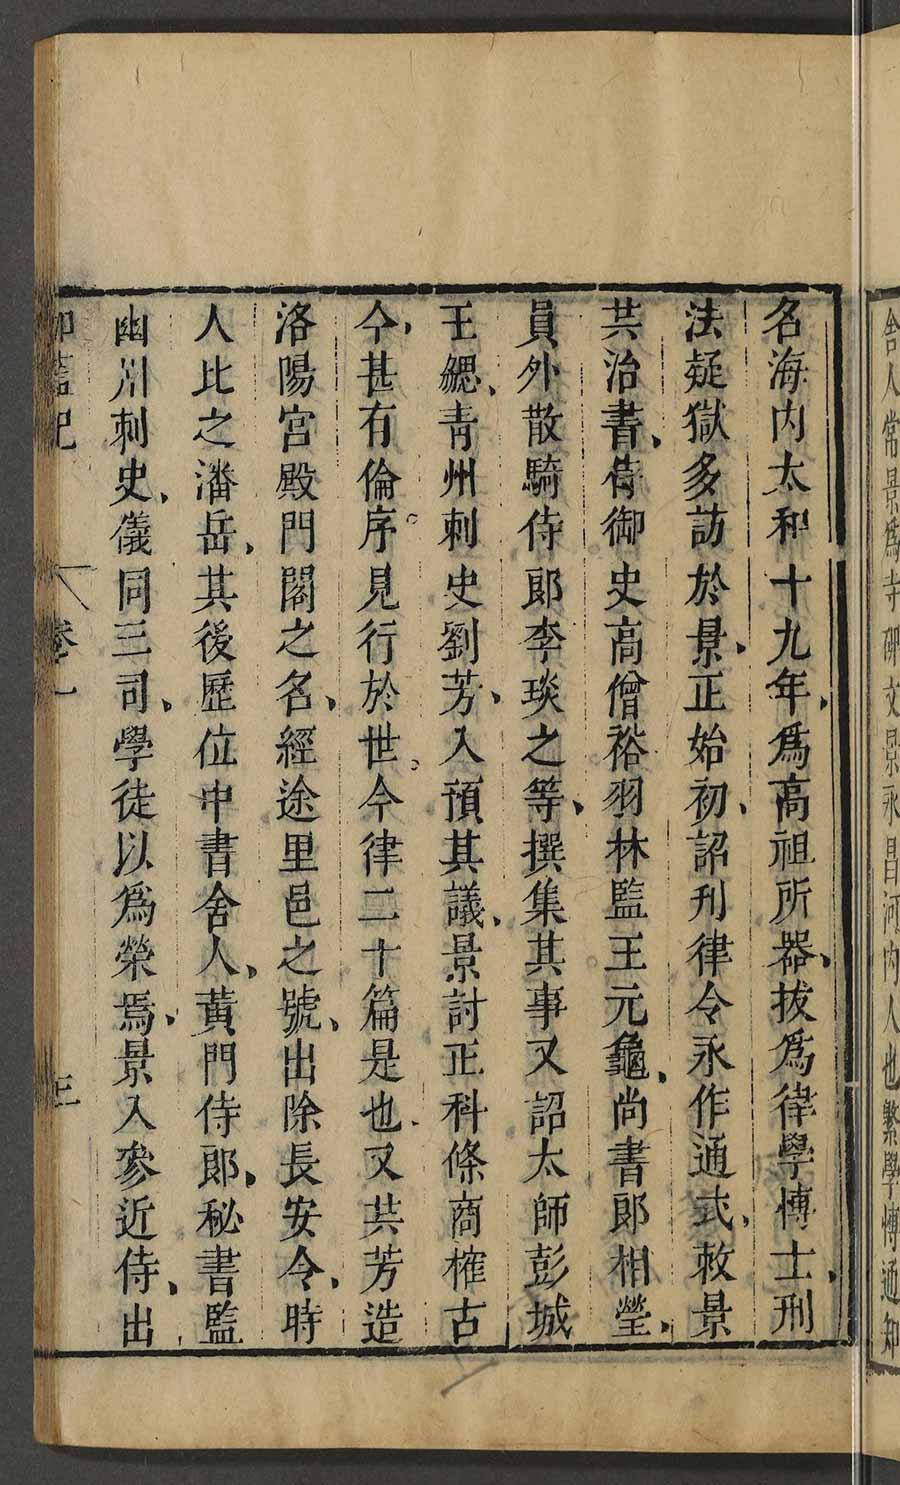 舍人常景爲寺碑文景永昌河內人也繁學博通知
名海内太和十九年爲高祖所器拔爲律學博士刑
法疑獄多訪於景正始初詔刋律令永作通式敕景
共治書侍御史高僧裕羽林監王元龜尚書郎祖瑩
員外散騎侍郎李琰之等撰集其事又詔太師彭城
王勰青州刺史劉芳入預其議景討正科條商榷古
今甚有倫序見行於世今律二十篇是也又共芳造
洛陽宮殿門閣之名經途里邑之號出除長安令時
人比之潘岳其後歷位中書舍人黃門侍郎秘書監
幽州刺史儀同三司學徒以爲榮焉景入參近侍出
伽藍記 卷一 三